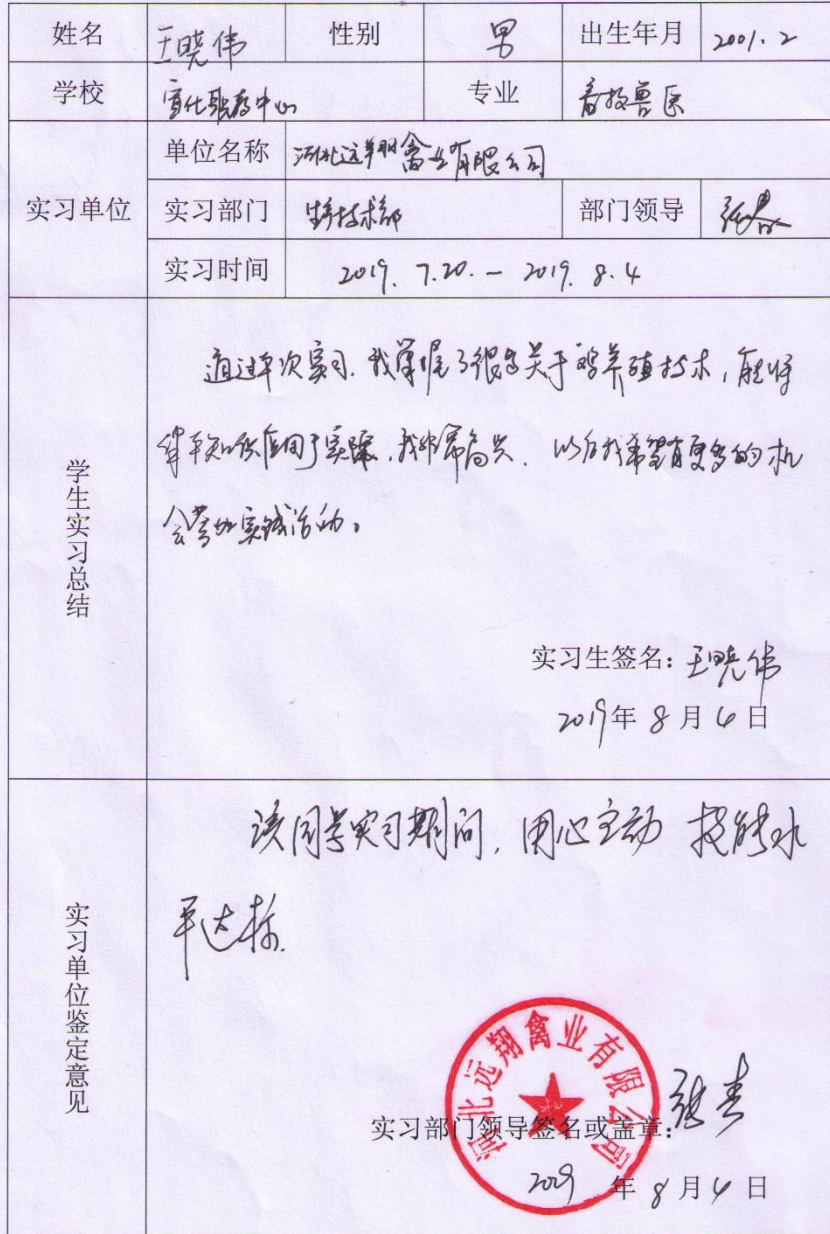 姓名 王晓伟 性别 男 出生年月 2001.2
学校 宣化职教中心 专业 畜牧兽医
实习单位
单位名称 河北远翔禽业有限公司
实习部门 生产技术部 部门领导 张春
实习时间 2019. 7.20. — 2019. 8. 4
学生实习总结
通过本次实习,我掌握了很多关于鸡养殖技术,能将
学知识应用于实际,我非常高兴. 以后我希望有更多的机
会参加实践活动。
实习生签名:王晓伟
2019年 8 月 4 日
实习单位鉴定意见
该同学实习期间,用心主动 技能水
平达标.
河北远翔禽业有限公司
实习部门领导签名或盖章:张春
2019 年 8 月 4 日